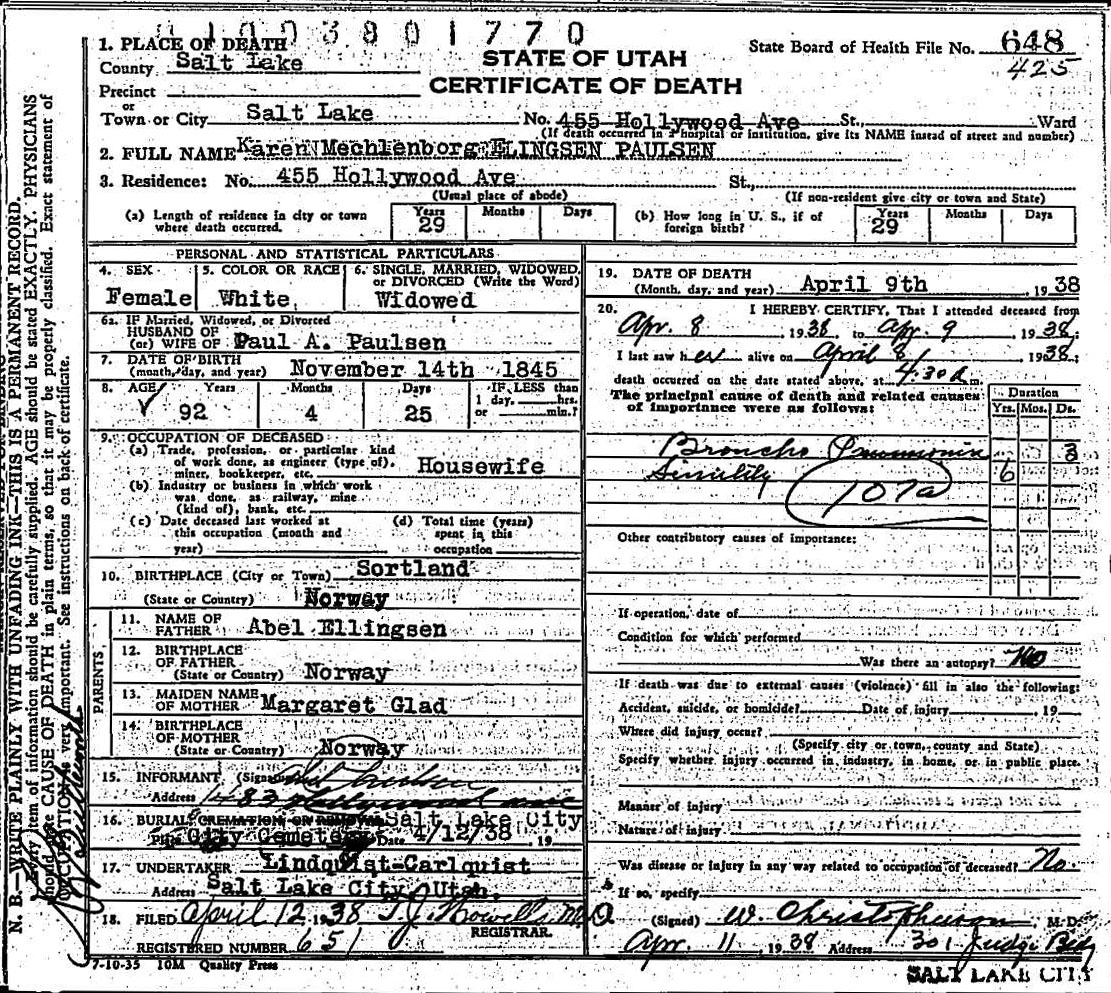 1003801770
1. PLACE OF DEATH
County Salt Lake
Precinct
or
Town or City Salt Lake
STATE OF UTAH
CERTIFICATE OF DEATH
State Board of Health File No. 648
425
No. 455 Hollywood Ave St., Ward
(If death occurred in a hospital or institution, give its NAME instead of street and number)
2. FULL NAME Karen Mechlenborg ELINGSEN PAULSEN
3. Residence: No. 455 Hollywood Ave St.,
(Usual place of abode) (If non-resident give city or town and State)
(a) Length of residence in city or town where death occurred. Years 29 Months Days
(b) How long in U. S., if of foreign birth? Years 29 Months Days
PERSONAL AND STATISTICAL PARTICULARS
4. SEX Female
5. COLOR OR RACE White
6. SINGLE, MARRIED, WIDOWED, or DIVORCED (Write the Word) Widowed
6a. IF Married, Widowed, or Divorced
HUSBAND OF
(or) WIFE OF Paul A. Paulsen
7. DATE OF BIRTH
(month, day, and year) November 14th 1845
8. AGE Years 92 Months 4 Days 25 IF LESS than 1 day, hrs. or min.?
9. OCCUPATION OF DECEASED
(a) Trade, profession, or particular kind
of work done, as engineer (type of),
miner, bookkeeper, etc. Housewife
(b) Industry or business in which work
was done, as railway, mine
(kind of), bank, etc.
(c) Date deceased last worked at
this occupation (month and
year)
(d) Total time (years)
spent in this
occupation
10. BIRTHPLACE (City or Town) Sortland
(State or Country) Norway
PARENTS
11. NAME OF FATHER Abel Ellingsen
12. BIRTHPLACE OF FATHER
(State or Country) Norway
13. MAIDEN NAME OF MOTHER Margaret Glad
14. BIRTHPLACE OF MOTHER
(State or Country) Norway
15. INFORMANT (Signed)
Address Hollywood ave
16. BURIAL, CREMATION, OR REMOVAL Salt Lake City
Place City Cemetery Date 4/12/38, 19
17. UNDERTAKER Lindquist-Carlquist
Address Salt Lake City, Utah.
18. FILED April 12 1938 T. J. Howells M.D.
REGISTRAR.
REGISTERED NUMBER 651
7-10-35 10M Quality Press
19. DATE OF DEATH
(Month, day, and year) April 9th, 1938
20. I HEREBY CERTIFY, That I attended deceased from
Apr. 8 1938 to Apr. 9, 1938.
I last saw her alive on April 8, 1938;
death occurred on the date stated above, at 4:30 a m.
The principal cause of death and related causes
of importance were as follows:
Duration
Yrs. Mos. Ds.
Broncho Pneumonia 3
Senility 6
107a
Other contributory causes of importance:
If operation, date of
Condition for which performed
Was there an autopsy? No
If death was due to external causes (violence) fill in also the following:
Accident, suicide, or homicide? Date of injury, 19
Where did injury occur?
(Specify city or town, county and State)
Specify whether injury occurred in industry, in home, or in public place.
Manner of injury
Nature of injury
Was disease or injury in any way related to occupation of deceased? No.
If so, specify
(Signed) W. Christopherson M.D.
Apr. 11, 1938 Address 301 Judge Bldg
SALT LAKE CITY
N. B.—WRITE PLAINLY WITH UNFADING INK—THIS IS A PERMANENT RECORD.
item of information should be carefully supplied. AGE should be stated EXACTLY. PHYSICIANS
should CAUSE OF DEATH in plain terms, so that it may be properly classified. Exact statement of
OCCUPATION is very important. See instructions on back of certificate.